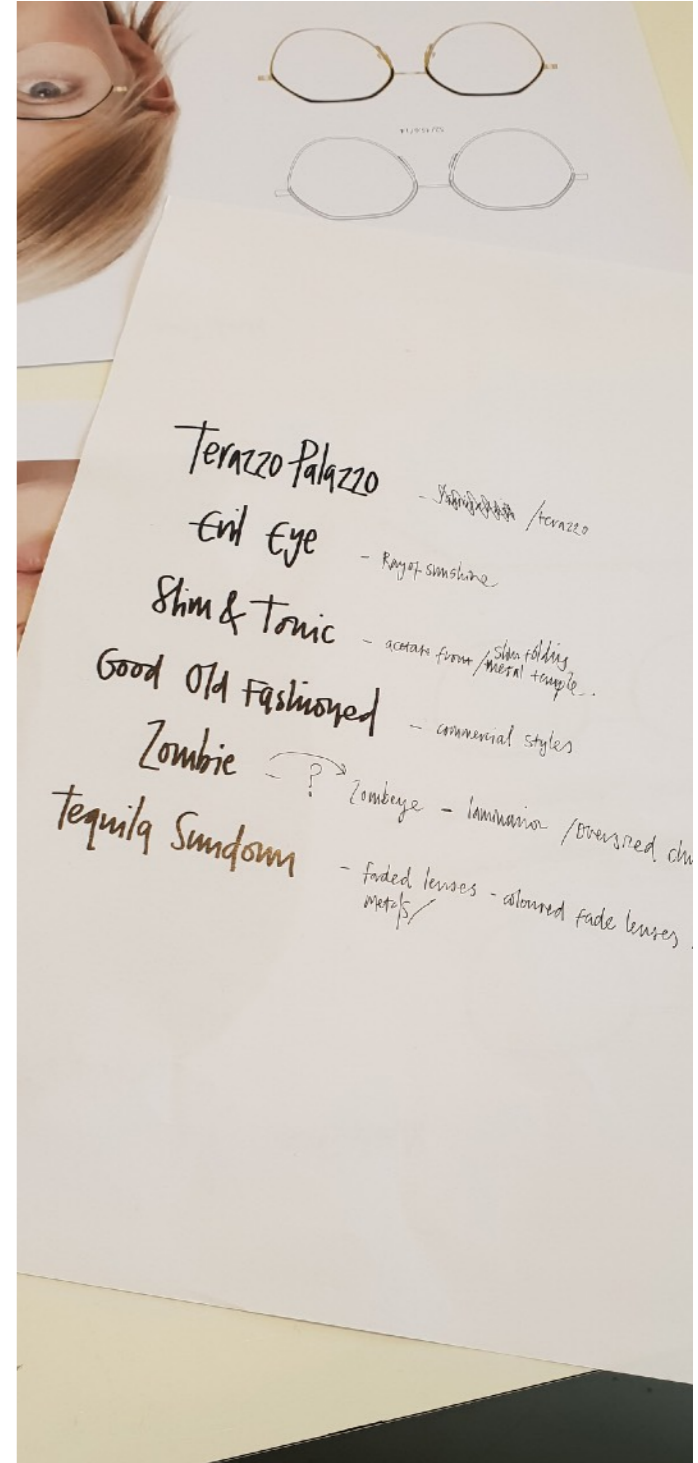 Terazzo Palazzo - /terazzo
Evil Eye - Ray of sunshine
Slim & Tonic - acetate front / slim folding
metal temple
Good Old Fashioned - commercial styles
Zombie - ? Zombeye - /oversized
Tequila Sundown - faded lenses - coloured fade lenses
metals/